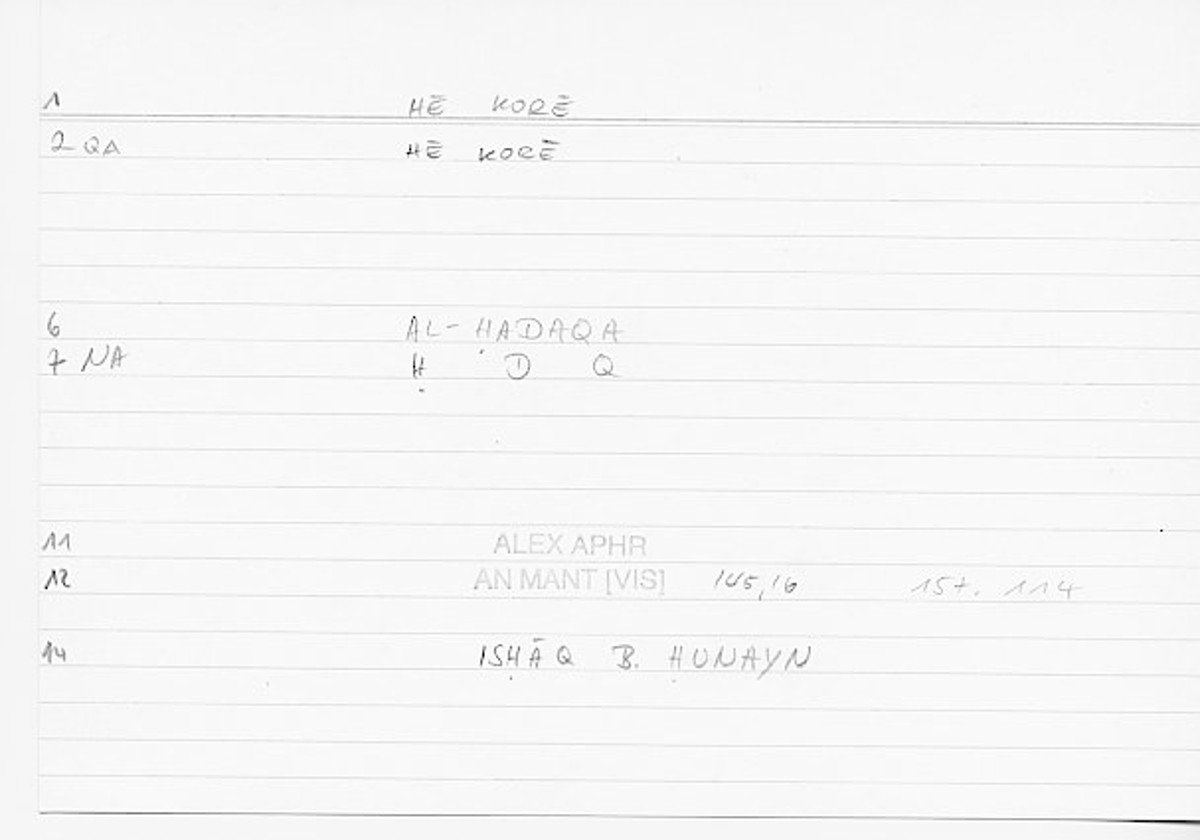 1 HĒ KORĒ
2 QA HĒ KORĒ
6 AL-ḤADAQA
7 NA Ḥ D Q
11 ALEX APHR
12 AN MANT [VIS] 145,16 157. 114
14 ISḤĀQ B. ḤUNAYN